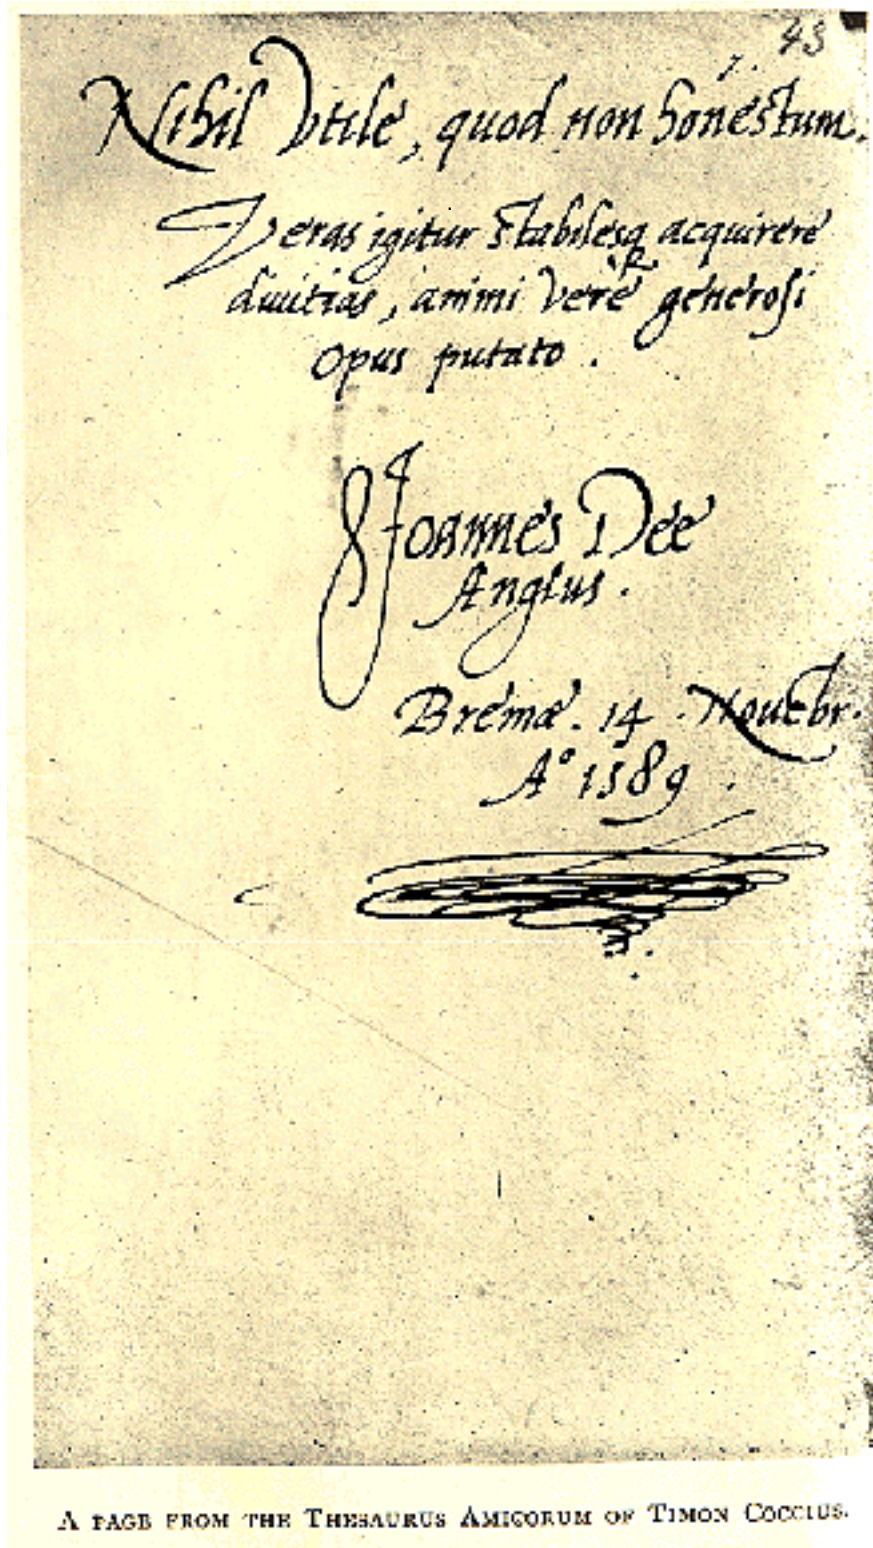 43
Nihil Vtile, quod non honestum.
Veras igitur stabilesq acquirere
diuitias, animi verè generosi
opus putato.
Joannes Dee
Anglus.
Bremæ. 14. Nouēbr.
A° 1589
A PAGE FROM THE THESAURUS AMICORUM OF TIMON COCCIUS.